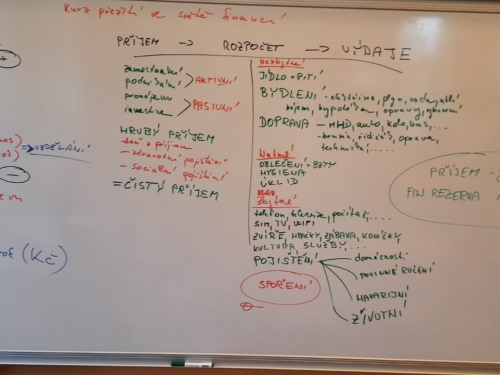 Kurz přežití ve světě financí
PŘÍJEM → ROZPOČET → VÝDAJE
zaměstnání
podnikání
AKTIVNÍ
pronájem
investice
PASIVNÍ
HRUBÝ PŘÍJEM
- daň z příjmu
- zdravotní pojištění
- sociální pojištění
= ČISTÝ PŘÍJEM
Nezbytné
JÍDLO + PITÍ
BYDLENÍ - elektřina, plyn, voda,
nájem, hypotéka, opravy,
DOPRAVA - MHD, auto, kolo, bus,...
- benzín, řidičák, oprava,
technická,....
Nutné
OBLEČENÍ - BOTY
HYGIENA
ÚKLID
Zbytné
telefon, televize, počítač,....
SIM, TV, WIFI
ZVÍŘE, HRAČKY, ZÁBAVA, KONÍČKY,
KULTURA, SLUŽBY,...
POJIŠTĚNÍ
domácnosti
POVINNÉ RUČENÍ
HAVARIJNÍ
ŽIVOTNÍ
SPOŘENÍ
PŘÍJEM -
FIN. REZERVA
+
=> VZDĚLÁNÍ
-
(Kč)